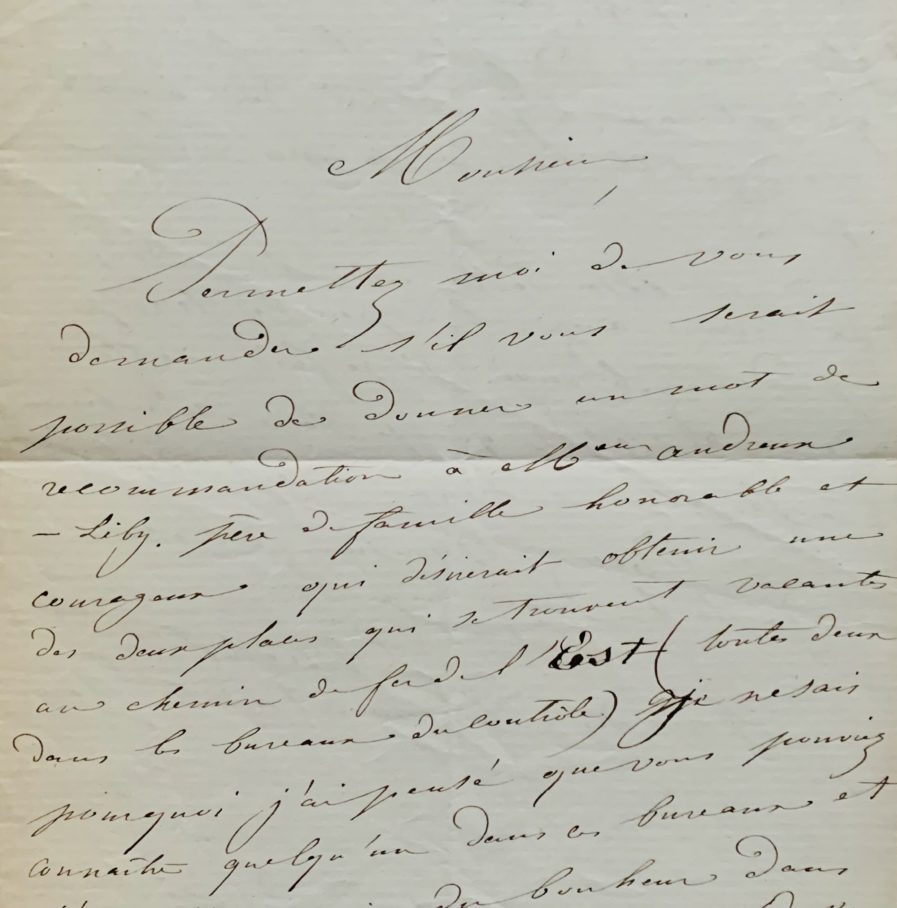 Monsieur,
Permettez moi de vous
demander s'il vous serait
possible de donner un mot de
recommandation à M eur andreux
- Liby. père de famille honorable et
courageux qui désirerait obtenir une
des deux places qui se trouvent vacantes
au chemin de fer de l'Est (toutes deux
dans les bureaux du contrôle) je ne sais
pourquoi j'ai pensé que vous pouviez
connaître quelqu'un dans ces bureaux et
du bonheur dans